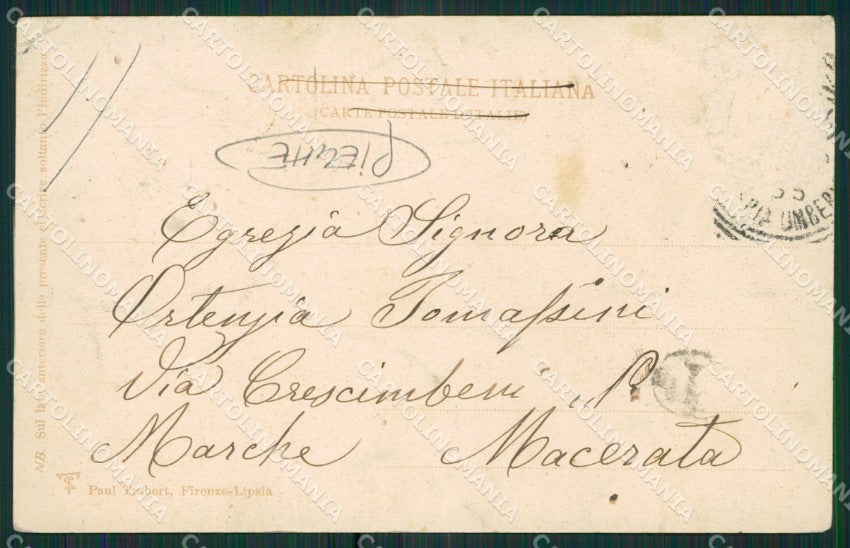 CARTOLINA POSTALE ITALIANA
(CARTE POSTALE D'ITALIE)
Egregia Signora
Ortenzia Tomassini
Via Crescimbeni
Marche Macerata
NB. Sul lato anteriore della presente si scrive soltanto l'indirizzo
Paul Trabert, Firenze-Lipsia
UMBER
T
CARTOLINOMANIA